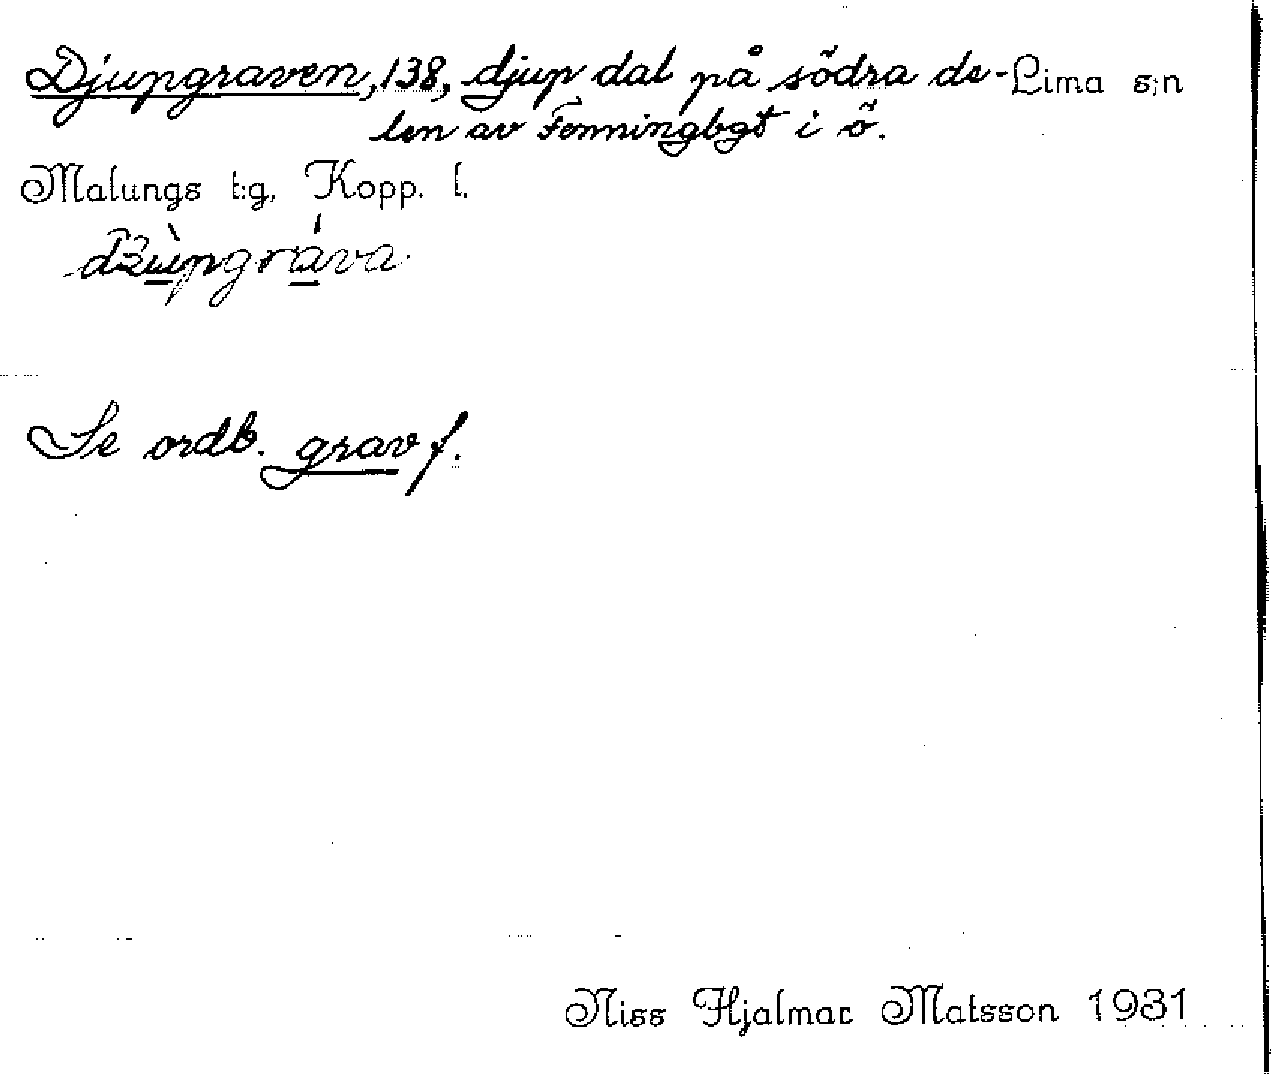 Djupgraven, 138, djup dal på södra de- Lima s:n
len av Fenningbgt i ö.
Malungs t:g, Kopp. l.
Se ordb. grav f.
Niss Hjalmar Matsson 1931